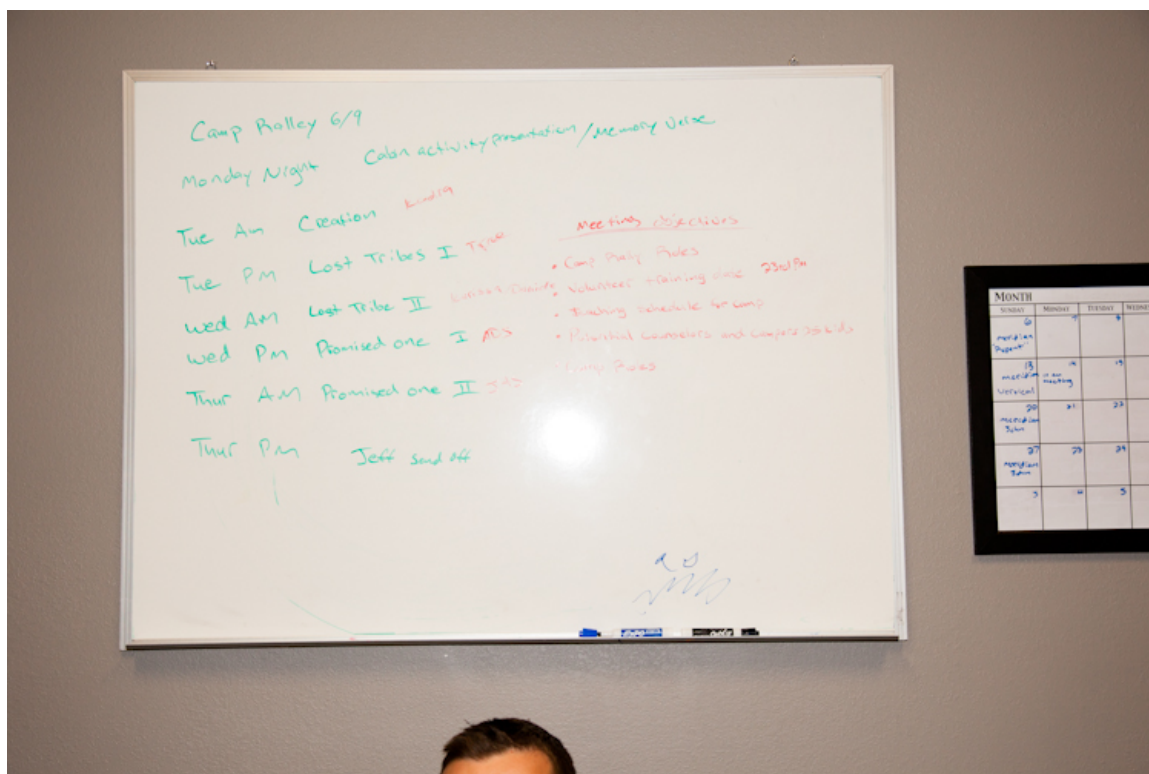 Camp Ralley 6/9
Monday Night Cabin activity presentation / Memory Verse
Tue Am Creation
Tue PM Lost Tribes I
Wed AM Lost Tribe II
Wed Pm Promised one I
Thur AM Promised one II
Thur Pm Jeff send off
Meeting objectives
• Camp Rally Roles
• Volunteer training date 23rd Pm
• Teaching schedule for camp
• Potential Counselors and Campers kids
Roles
MONTH
SUNDAY MONDAY TUESDAY
6 7 8
meridian
13 14 15
meridian
meeting
20 21 22
meridian
John
27 28 29
meridian
John
3 4 5